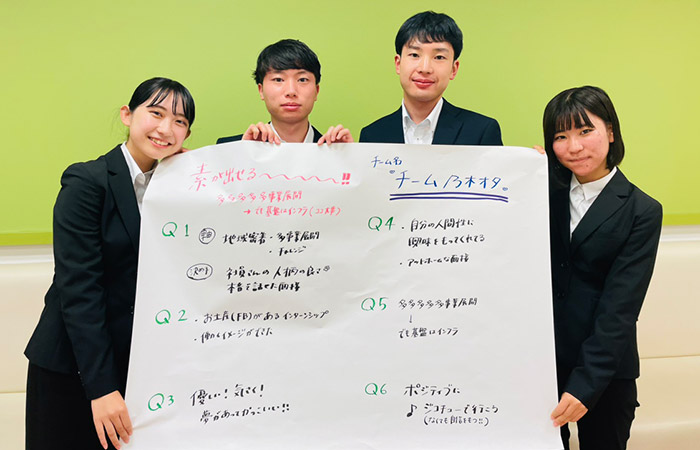 素が出せる〜〜〜〜〜〜!!
多多多多多事業展開
→でも基盤はインフラ
チーム名
"チーム乃木オタ。
Q1
理由
地域密着・多事業展開
・チャレンジ
決め手
社員さんの人柄の良さ
本音を話せた面接
Q2
・お土産(FB)があるインターンシップ
・働くイメージができた
Q3
優しい!気さく!
夢があってかっこいい!!
Q4
・自分の人間性に
興味をもってくれてる
・アットホームな面接
Q5
多多多多多事業展開
↓
でも基盤はインフラ
Q6
ポジティブに
♪ ジコチューで行こう